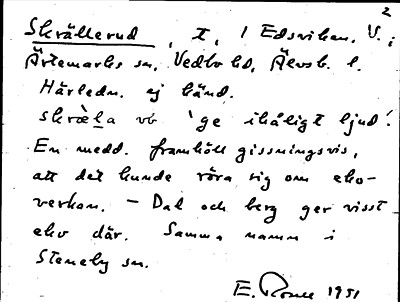 2
Skrällerud, t, 1 Edsviken. V. i
Ärtemarks sn, Vedbo hd, Älvsb. l.
Härledn. ej känd.
skrä̀la vb 'ge ihåligt ljud'.
En medd. framhöll gissningsvis,
att det kunde röra sig om eko-
verkan. — Dal och berg ger visst
eko där. Samma namn i
Steneby sn.
E. 1951